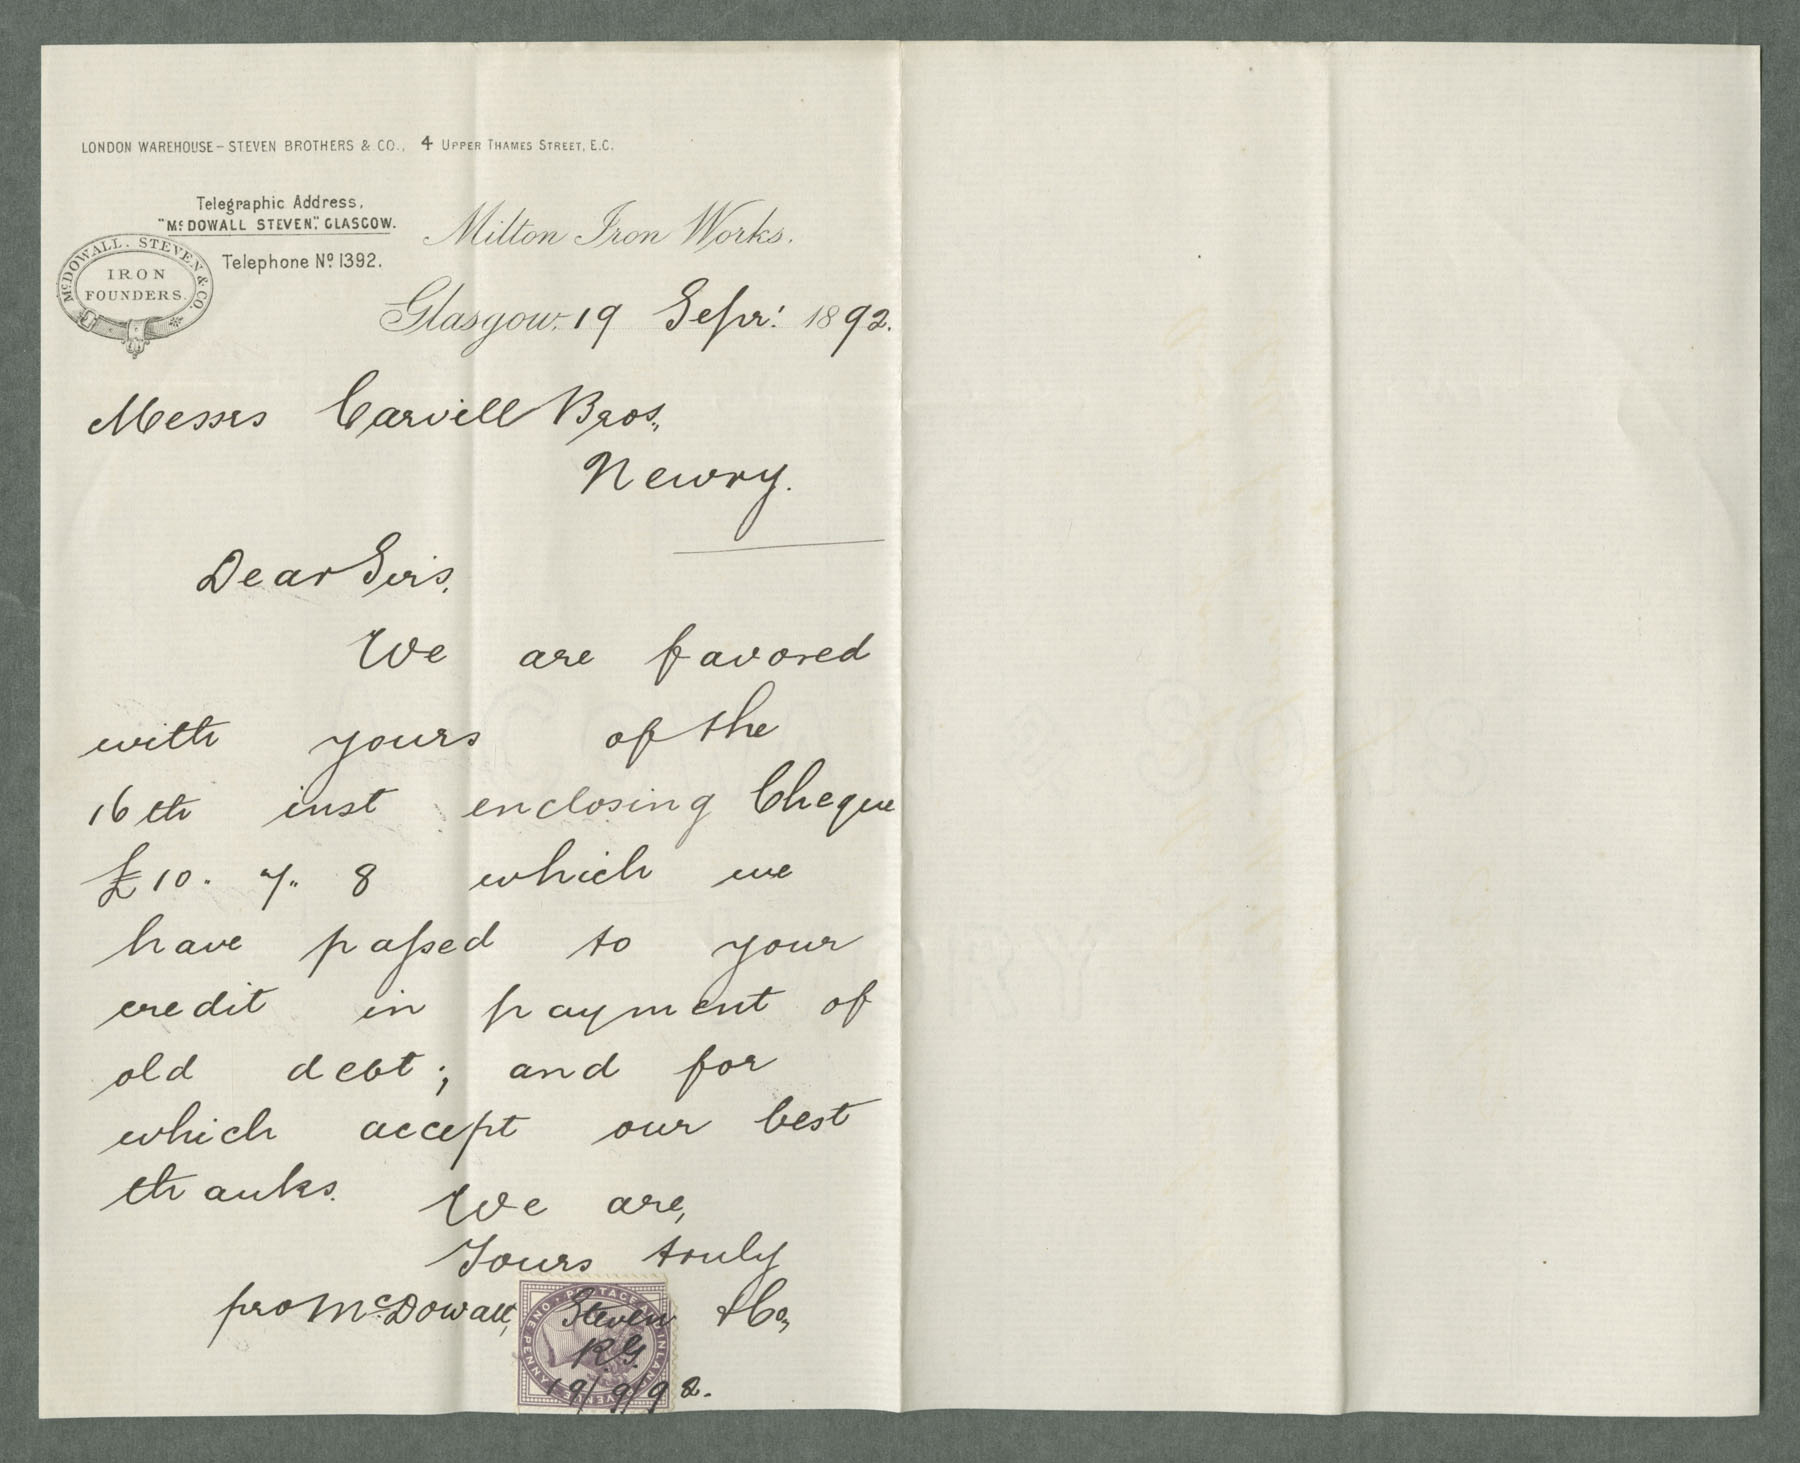 LONDON WAREHOUSE – STEVEN BROTHERS & CO., 4 UPPER THAMES STREET, E.C.
Telegraphic Address,
"Mc DOWALL STEVEN", GLASGOW.
Telephone No 1392.
McDOWALL. STEVEN & CO.
IRON
FOUNDERS.
Milton Iron Works.
Glasgow, 19 Sepr: 1892.
Messrs Carvill Bros.,
Newry.
Dear Sirs,
We are favored
with yours of the
16th inst enclosing Cheque
£10. 7. 8 which we
have passed to your
credit in payment of
old debt; and for
which accept our best
thanks.
We are,
Yours truly
pro McDowall, Steven & Co,
R.G.
19/9/92.
POSTAGE AND INLAND REVENUE
ONE PENNY